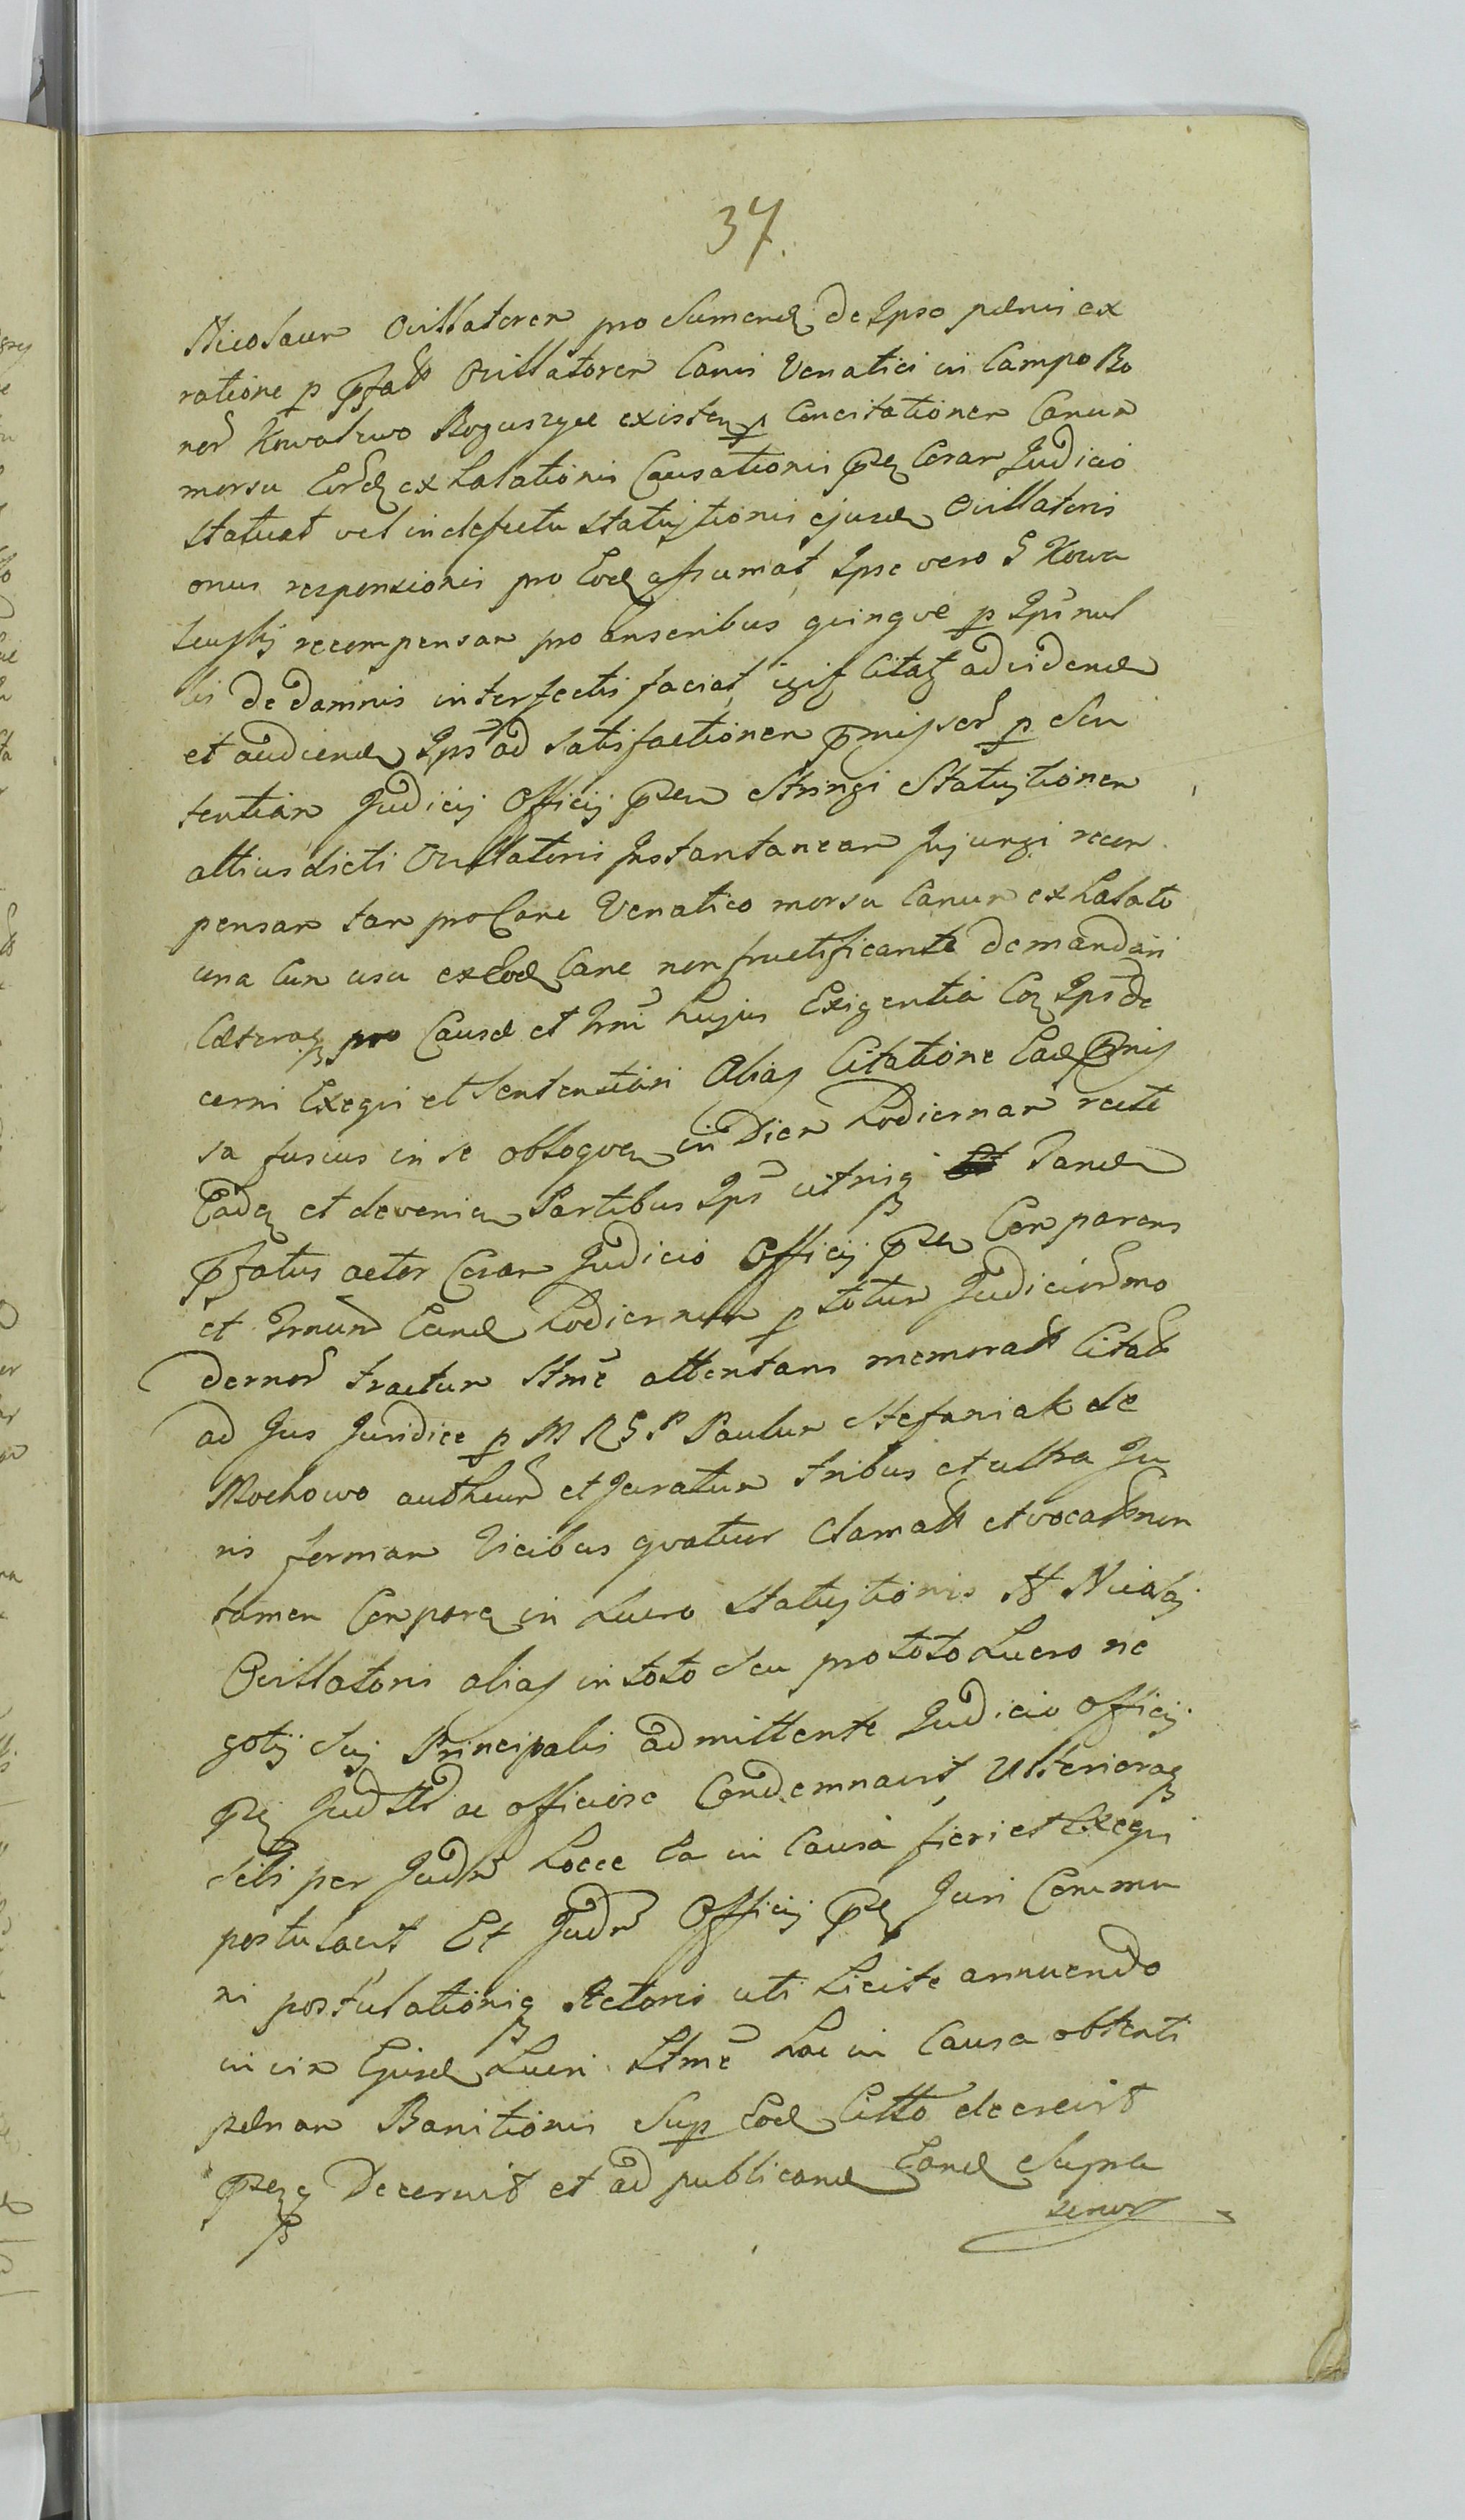 37.
Nicolaum Ovillatorem pro sumend de Ipso pænis ex
ratione p pfatt Ovillatorem Canis Venatici in Campo Bo
nor Kowalewo Boguszyce existen p Concitationem Canum
morsu Eord exhalationis Causationis pn Coram Judicio
statuat vel in defectu statuitionis ejusd Ovillatoris
onus responsionis pro Eod assumat, Ipse vero G Kowa
lewskj recompensam pro anseribus quinqve p Ips nul
lis de damnis interfectis faciat, igit Citatq ad vidend
et audiend Ips ad satisfactionem pmissor p Sen
tentiam Judicij Officij pn stringi Statuitionem
altius dicti Ovillatoris Instantaneam Injungi recom
pensam tam pro Cane Venatico morsu Canum exhalato
una Cum usu ex Eod Cane non fructificante demandari
Cæteraq pro Causæ et Trni hujus Exigentia Coq Ips de
cerni Exequi et Sententiari Alias Citatione Ead pmis
sa fusius in se obloqven in Diem hodiernam recte
Caden et devenien Partibus Ips utrisq Tand
pfatus actor Coram Judicio Officij pn Comparens
et Trnum Eund hodiernum p totum Judicior mo
dernor tractum Ltme attentans memoratt Citatt
ad Jus Juridice p M R G P Paulum Stefaniak de
Mochowo authenr et Juratum tribus et ultra Ju
ris formam Vicibus qvatuor Clamatt et vocatt non
tamen Compare in Lucro Statuitionis tt Nicolaj
Ovillatoris alias in toto seu pro toto Lucro ne
gotij Sui Principalis admittente Judicio Officij
pn Judtt ac officiose Condemnavit, Ulterioraq
Sibi per Judm hocce Ea in Causa fieri et Exequi
postulavit Et Judm Officij pn Juri Commu
ni postulationiq Actoris uti Licite annuendo
in vim Ejusd Lucri Ltme hac in Causa obtenti
pænam Banitionis Sup Eod Citto decrevit
pnq Decernit et ad publicand Eand Supra